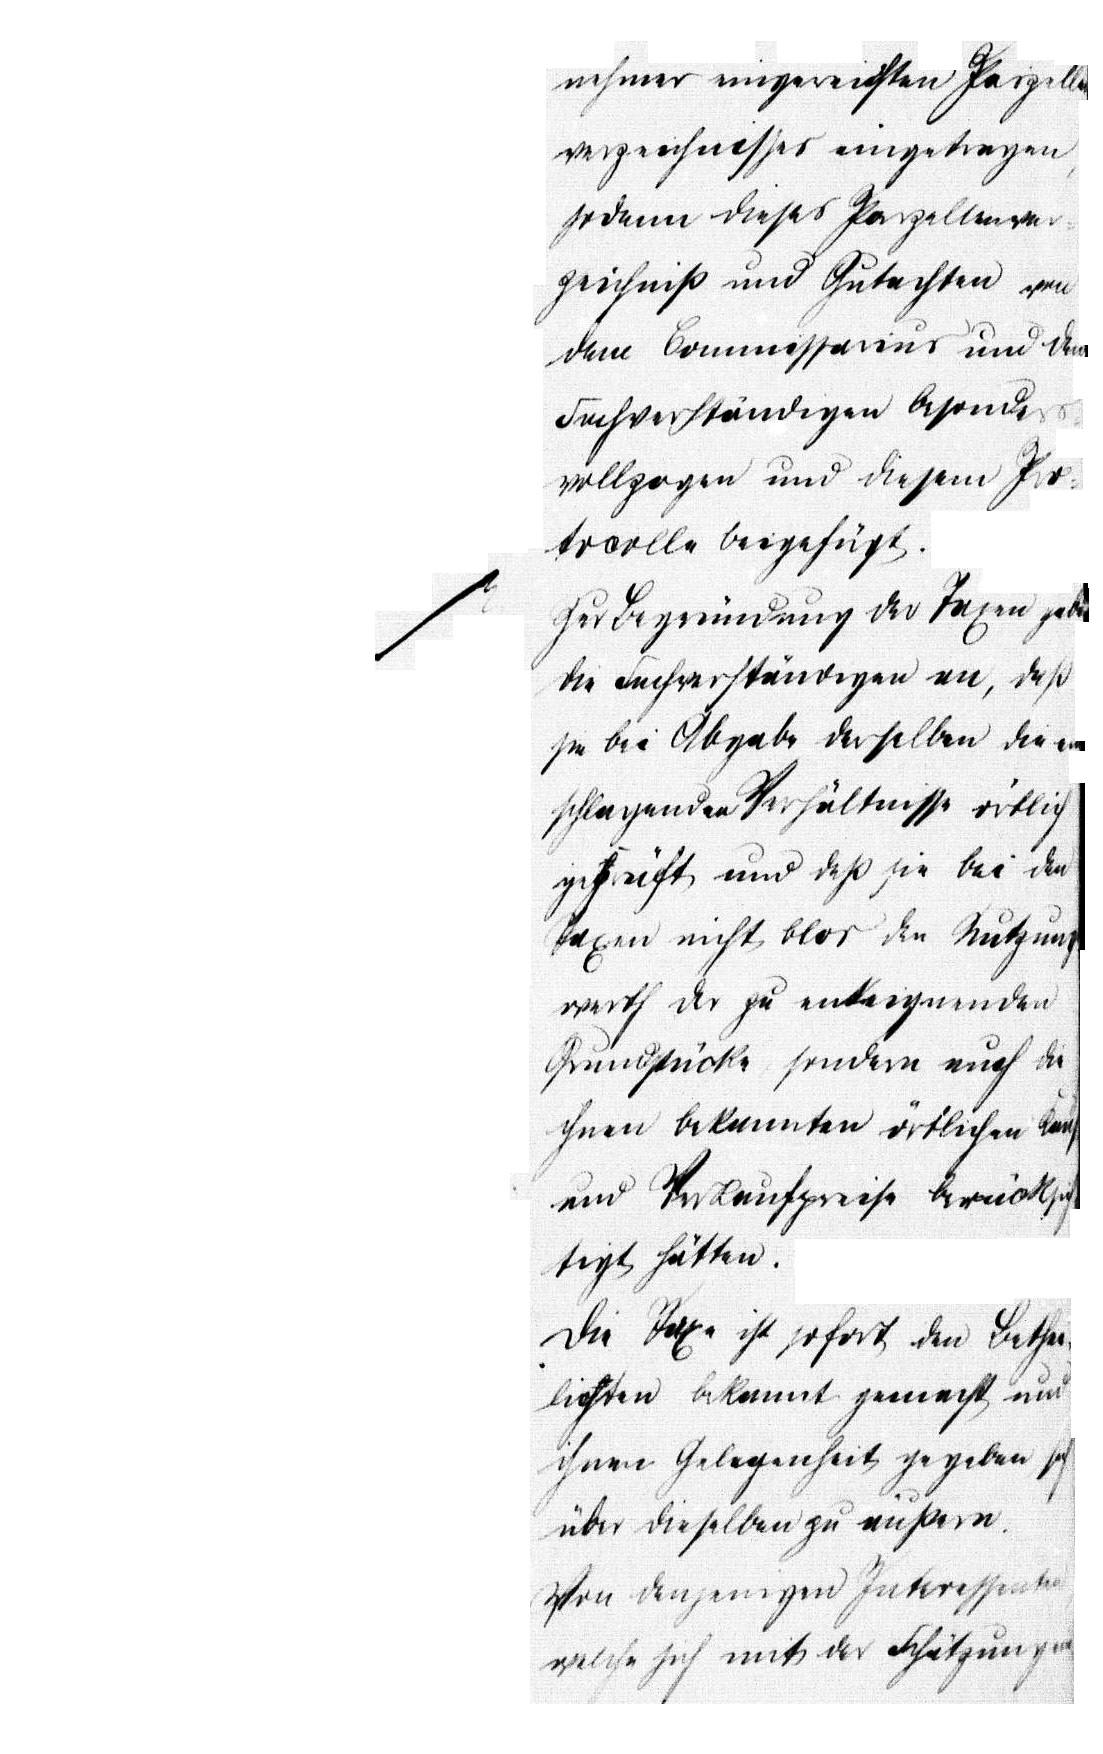 nehmer eingereichten Parzellen
verzeichnisses eingetragen,
sodann dieses Parzellenver-
zeichniß und Gutachten von
dem Commissarius und den
Sachverständigen besonders
vollzogen und diesem Pro-
tocolle beigefügt.
Zur Begründung der Taxen geben
die Sachverständigen an, daß
sie bei Abgabe derselben die ein
schlagenden Verhältnisse örtlich
geprüft und daß sie bei den
Taxen nicht blos den Nutzungs
werth der zu enteignenden
Grundstücke sondern auch die
ihnen bekannten örtlichen Kauf
und Verkaufpreise berücksich
tigt hätten.
Die Taxe ist sofort den Bethei-
ligten bekannt gemacht und
ihnen Gelegenheit gegeben sich
über dieselben zu äußern.
Von denjenigen Interessenten,
welche sich mit der Schätzung